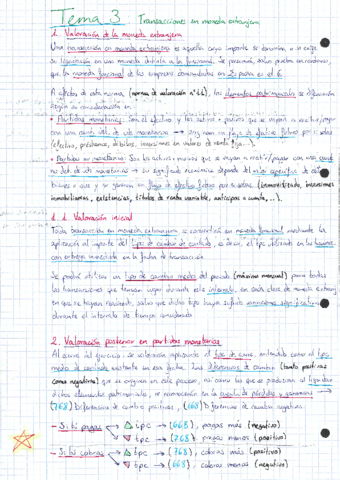 Tema 3 Transacciones en moneda extranjera
1. Valoración de la moneda extranjera
Una transacción en moneda extranjera es aquella cuyo importe se denomina, o se exige
su liquidación en una moneda distinta a la funcional. Se presumirá, salvo prueba en contrario,
que la moneda funcional de las empresas domiciliadas en España es el €.
A efectos de esta norma (norma de valoración nº 11), los elementos patrimoniales se diferencian
según su consideración en:
• Partidas monetarias: Son el efectivo y los activos y pasivos que se vayan a recibir/pagar
con una cantidad de unidades monetarias
(efectivo, préstamos, débitos, inversiones en valores de renta fija...).
• Partidas no monetarias: Son los activos pasivos que se vayan a recibir/pagar con una
→ su significado económico depende del valor específico de
bienes o que y no generan un flujo de efectivo (inmovilizado, inversiones
inmobiliarias, existencias, títulos de renta variable, anticipos a cuenta, ...).
1.1 Valoración inicial
Toda transacción en moneda extranjera se convertirá en moneda funcional, mediante la
aplicación al importe del tipo de cambio de contado, es decir, el tipo utilizado en las
con entrega inmediata en la fecha de transacción.
Se podrá utilizar un tipo de cambio medio del periodo (máximo mensual) para todas
las transacciones que tengan lugar durante este intervalo, en cada clase de moneda extranjera
en que se hayan realizado, salvo que dicho tipo haya sufrido variaciones significativas
durante el intervalo de tiempo considerado.
2. Valoración posterior en partidas monetarias
Al cierre del ejercicio se valorarán aplicando el tipo de cierre, entendido como el tipo
medio de contado existente en esa fecha. Las diferencias de cambio (tanto positivas
como negativas) que se originen en este proceso, así como las que se produzcan al liquidar
dichos elementos patrimoniales, se reconocerán en la cuenta de pérdidas y ganancias →
(768) Diferencias de cambio positivas, (668) Diferencias de cambio negativas.
- Si tú pagas → △ tpc → (668), pagas más (negativo)
→ ▽ tpc → (768), pagas menos (positivo)
- Si tú cobras → △ tpc → (768), cobras más (positivo)
→ ▽ tpc → (668), cobras menos (negativo)